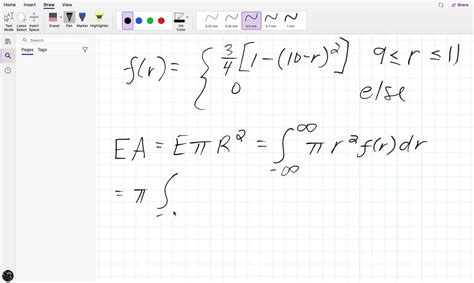 Home Insert Draw View
Text Mode Lasso Select Insert Space Eraser Pen Marker Highlighter 0.25 mm 0.35 mm 0.5 mm 0.7 mm 1 mm
Search
Pages Tags
f(r) = { 3/4 [1-(10-r)²] 9 ≤ r ≤ 11
0 else
EA = EπR² = ∫_{-∞}^{∞} π r² f(r) dr
= π ∫_-